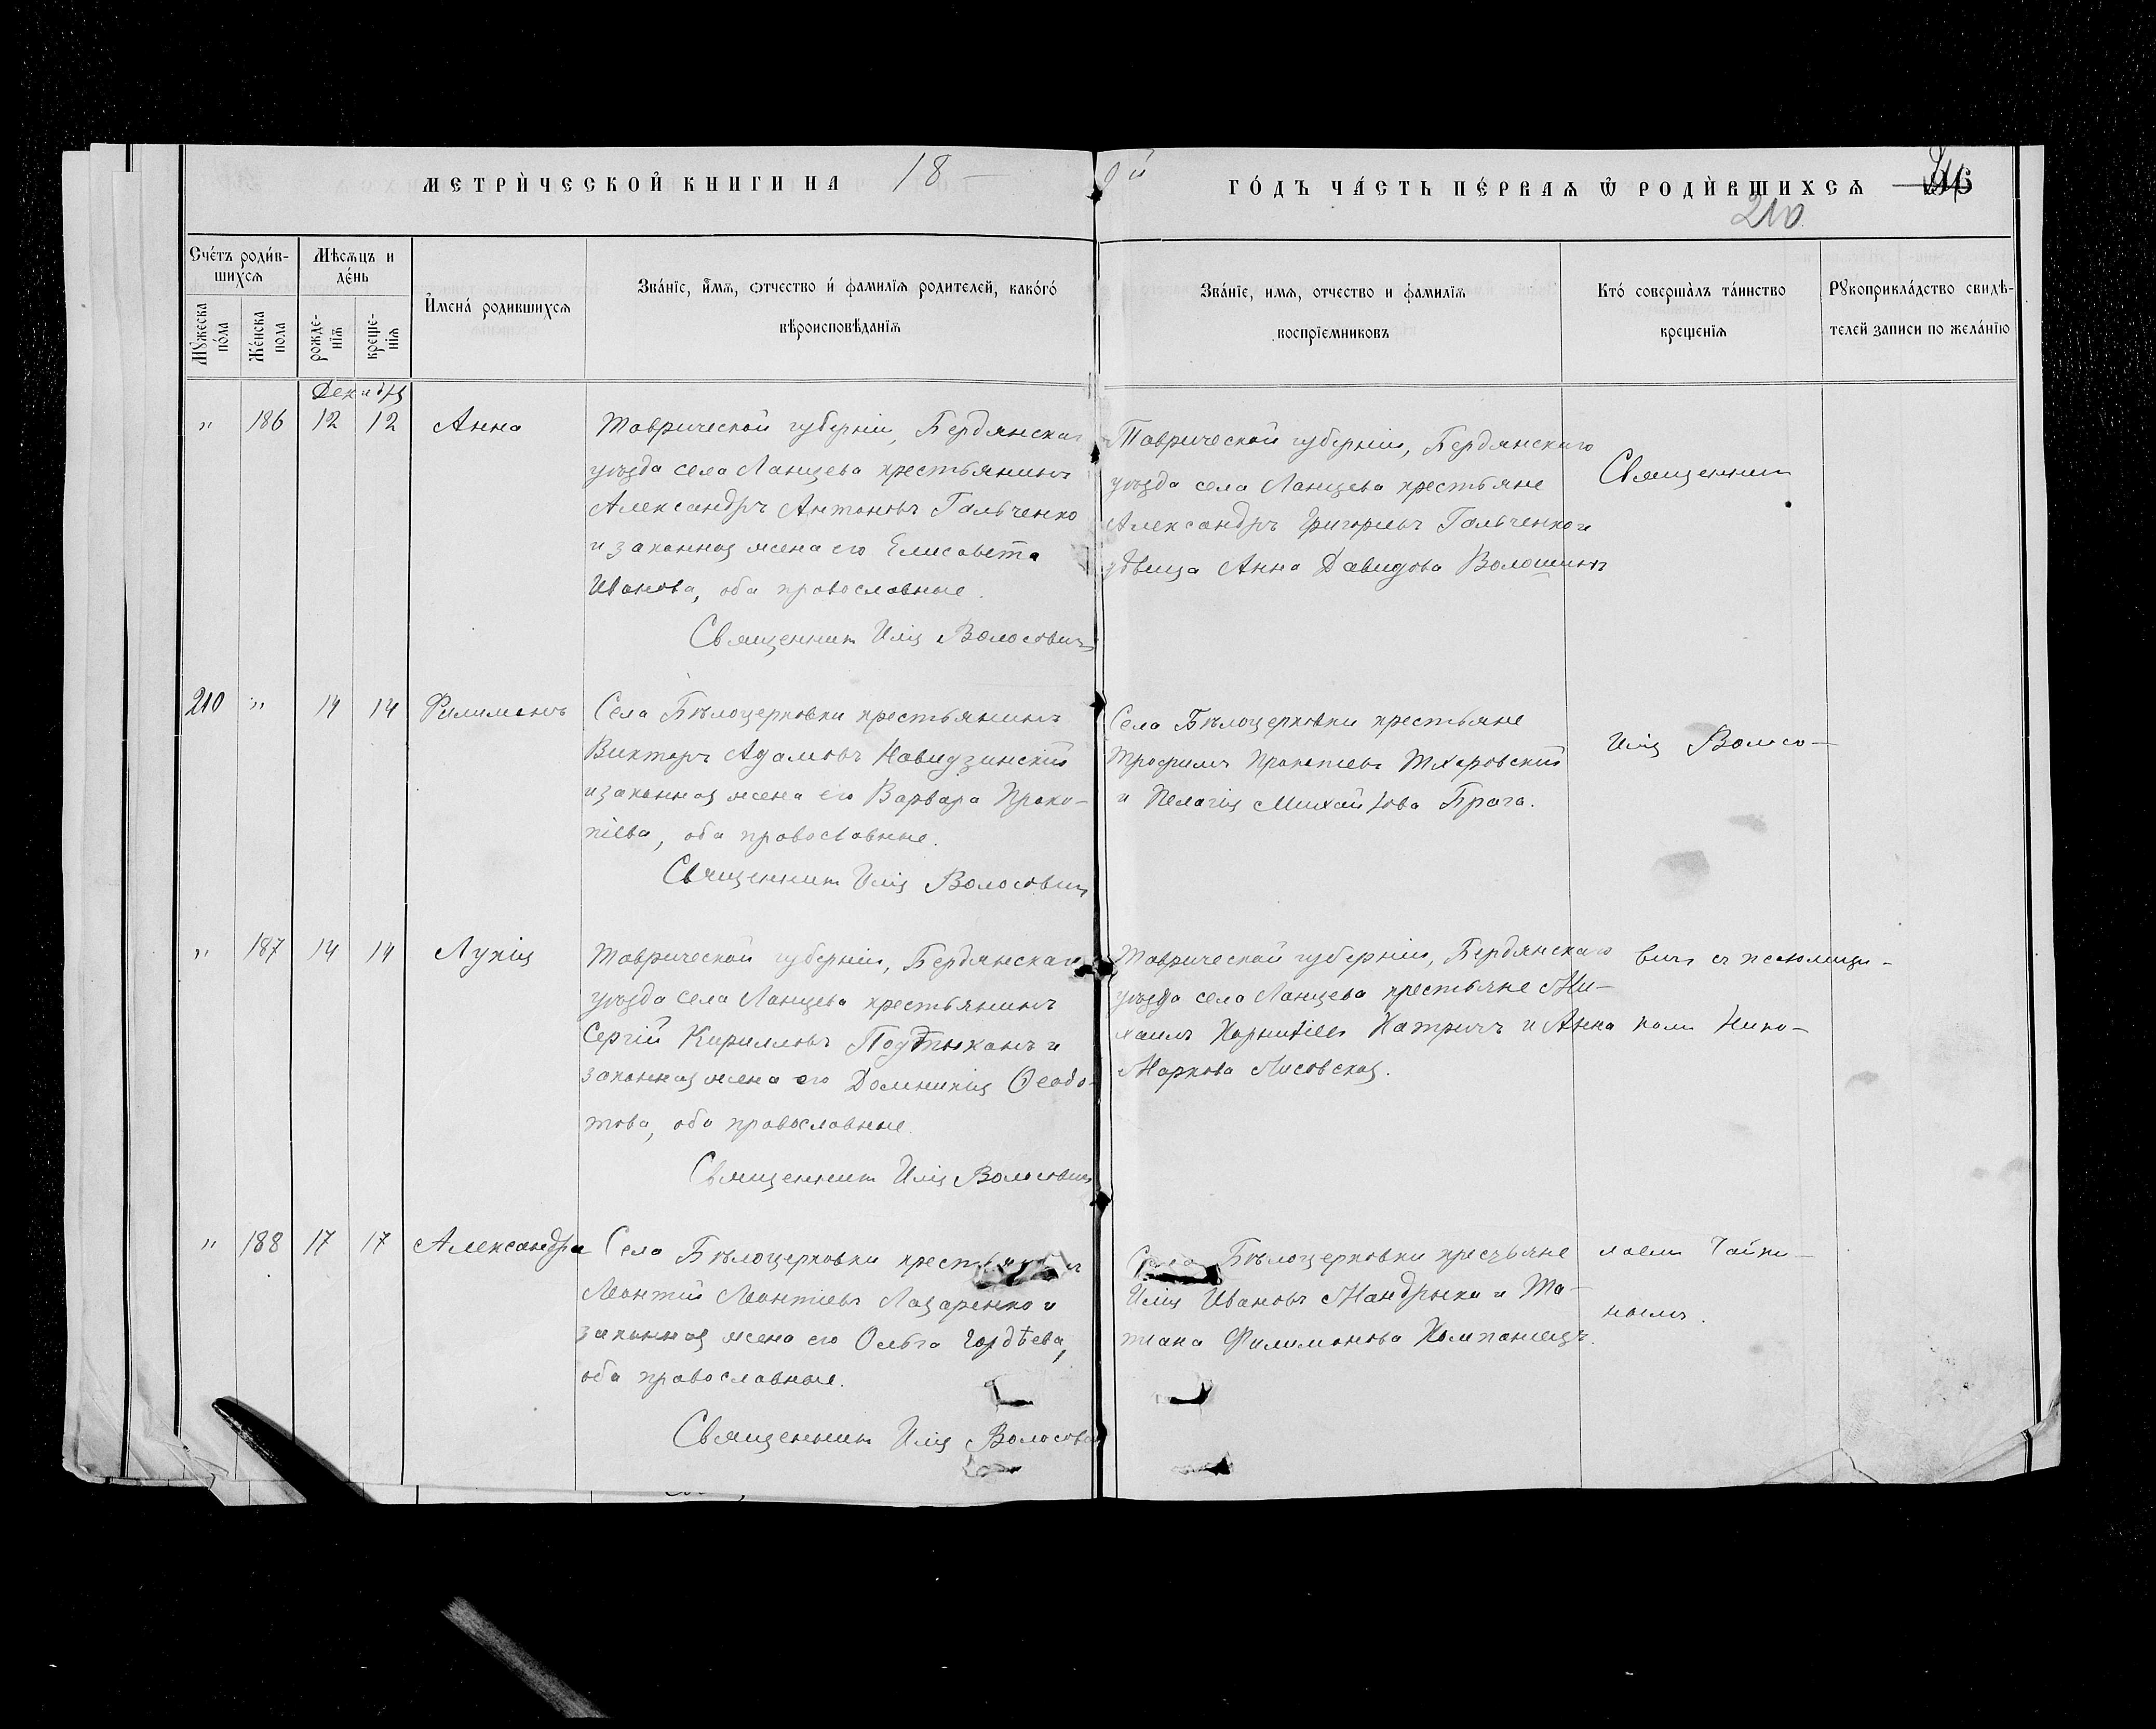 МЕТРИ́ЧЕСКОЙ КНИГИ НА 18 — й
ГО́ДЪ ЧА́СТЬ ПЕ́РВАѦ Ѡ҆ РОДИ́ВШИХСѦ
210
Сче́тъ роди́в-
шихсѧ
Мѣсѧцъ и
де́нь
Мꙋжеска
по́ла
Же́нска
пола
рожде-
нїѧ
креще-
нїѧ
И҆мена́ родившихсѧ
Зва́нїе, и҆́мѧ, ѻтчество и҆ фамилїѧ родителей, како́гѡ
вѣроисповѣ́данїѧ
Зва́нїе, имѧ, отчество и фамилїѧ
воспрїемниковъ
Кто́ совершалъ та́инство
крещенїѧ
Рꙋкоприкла́дство свидѣ-
телей записи по жела́нїю
Декабря
" 186 12 12 Анна
Таврической губерніи, Бердянскаго
уѣзда села Ланцева крестьянинъ
Александръ Антоновъ Гальченко
и законная жена его Елисавета
Иванова, оба православные.
Священникъ Илія Волосовичъ
Таврической губерніи, Бердянскаго
уѣзда села Ланцева крестьяне
Александръ Григорьевъ Гальченко и
вдвица Анна Давидова Волошинъ
Священникъ
210 " 14 14 Филимонъ
Села Бѣлоцерковки крестьянинъ
Викторъ Адамовъ Навидзинскій
и законная жена его Варвара Проко-
піева, оба православные.
Священникъ Илія Волосовичъ
Села Бѣлоцерковки крестьяне
Трофимъ Прокопіевъ
и Пелагія Михайлова Брага.
Илія Волосо-
" 187 14 14 Лукія
Таврической губерніи, Бердянскаго
уѣзда села Ланцева крестьянинъ
Сергій Кирилловъ и
законная жена его Домникія Ѳеодо-
това, оба православные.
Священникъ Илія Волосовичъ
Таврической губерніи, Бердянскаго
уѣзда села Ланцева крестьяне Ми-
хаилъ Корниліевъ Катричъ и Анна
Маркова Лисовская.
вичъ съ псаломщи-
комъ Нико-
" 188 17 17 Александра
Села Бѣлоцерковки крестьянинъ
Леонтій Леонтіевъ Лазаренко и
законная жена его Ольга Гордѣева,
оба православные.
Священникъ Илія Волосовичъ
Села Бѣлоцерковки крестьяне
Илія Ивановъ Мандрыка и Та-
тіана Филимонова Компаніецъ.
лаемъ Чайки-
нымъ.